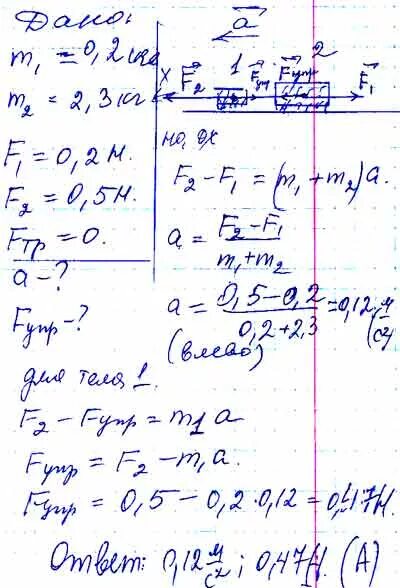 Дано:
m₁ = 0,2 кг
m₂ = 2,3 кг
F₁ = 0,2 Н.
F₂ = 0,5 Н.
Fтр = 0.
a - ?
Fупр - ?
a
1 2
X F₂ Fупр Fупр F₁
на ох
F₂ - F₁ = (m₁ + m₂) a.
a = F₂ - F₁ / m₁ + m₂
a = 0,5 - 0,2 / 0,2 + 2,3 = 0,12 (м/с²)
(влево)
для тела 1.
F₂ - Fупр = m₁ a
Fупр = F₂ - m₁ a.
Fупр = 0,5 - 0,2 · 0,12 = 0,47 Н.
Ответ: 0,12 м/с² ; 0,47 Н. (А)